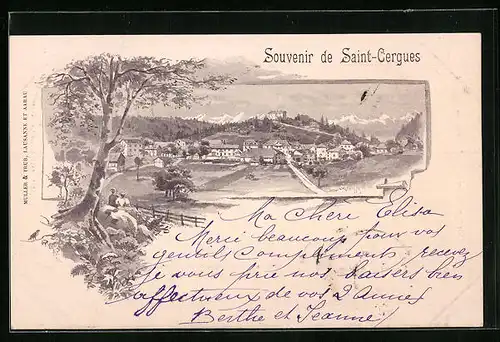 Souvenir de Saint-Cergues
MULLER & TRÜB, LAUSANNE ET AARAU
Ma Chère Elisa
Merci beaucoup pour vos
gentils Compliments recevez
je vous prie nos baisers bien
affectueux de vos 2 Amies
Berthe et Jeanne